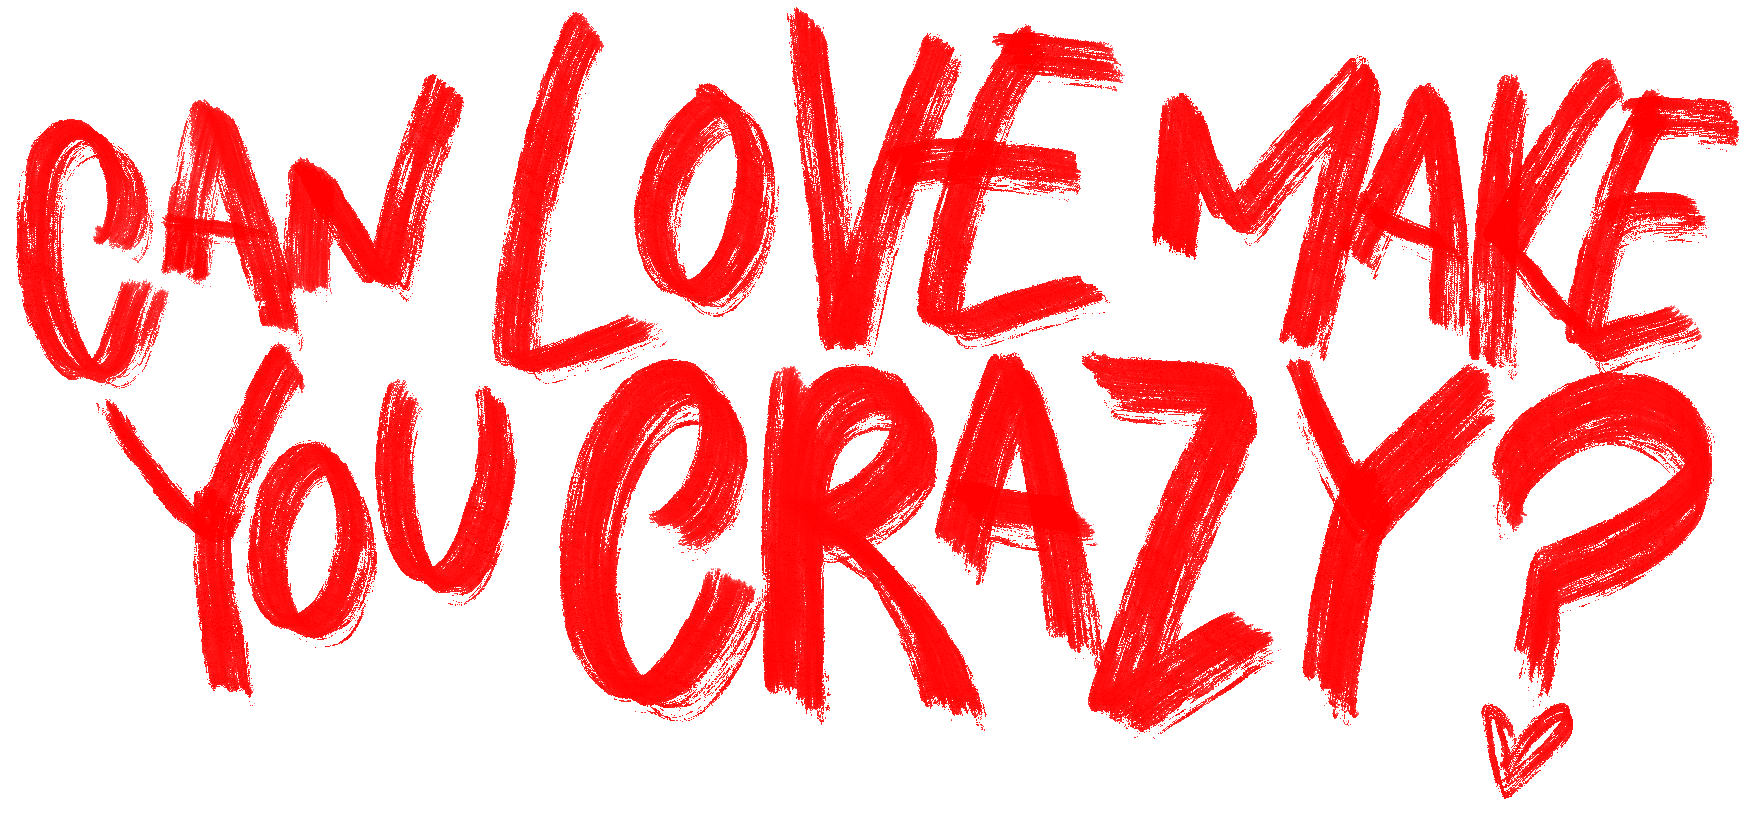 CAN LOVE MAKE
YOU CRAZY?